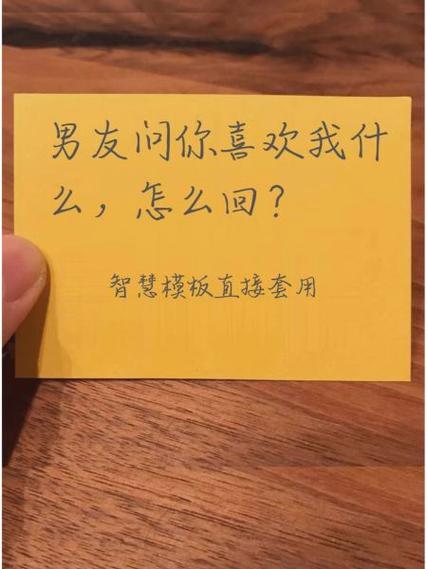 男友问你喜欢我什
么，怎么回？
智慧模板直接套用